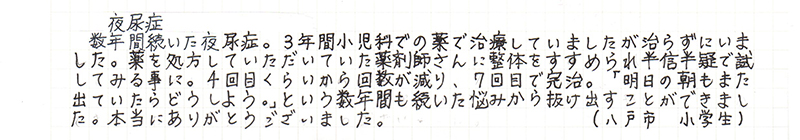 夜尿症
数年間続いた夜尿症。3年間小児科での薬で治療していましたが治らずにいま
した。薬を処方していただいていた薬剤師さんに整体をすすめられ半信半疑で試
してみる事に。4回目くらいから回数が減り、7回目で完治。「明日の朝もまた
出ていたらどうしよう。」という数年間も続いた悩みから抜け出すことができまし
た。本当にありがとうございました。 (八戸市 小学生)